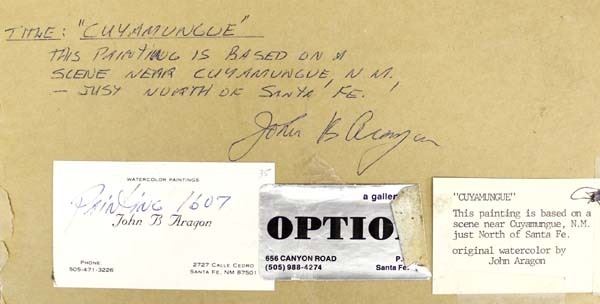 TITLE: "CUYAMUNGUE"
THIS PAINTING IS BASED ON A
SCENE NEAR CUYAMUNGUE, N.M.,
— JUSY NORTH OF SANTA FE.
John B Aragon
WATERCOLOR PAINTINGS
PAINTING 1607
John B Aragon
PHONE:
505-471-3226
2727 CALLE CEDRO
SANTA FE, NM 87501
a galler
OPTIO
656 CANYON ROAD
(505) 988-4274
P.
Santa Fe.
"CUYAMUNGUE"
This painting is based on a
scene near Cuyamungue, N.M.
just North of Santa Fe.
original watercolor by
John Aragon